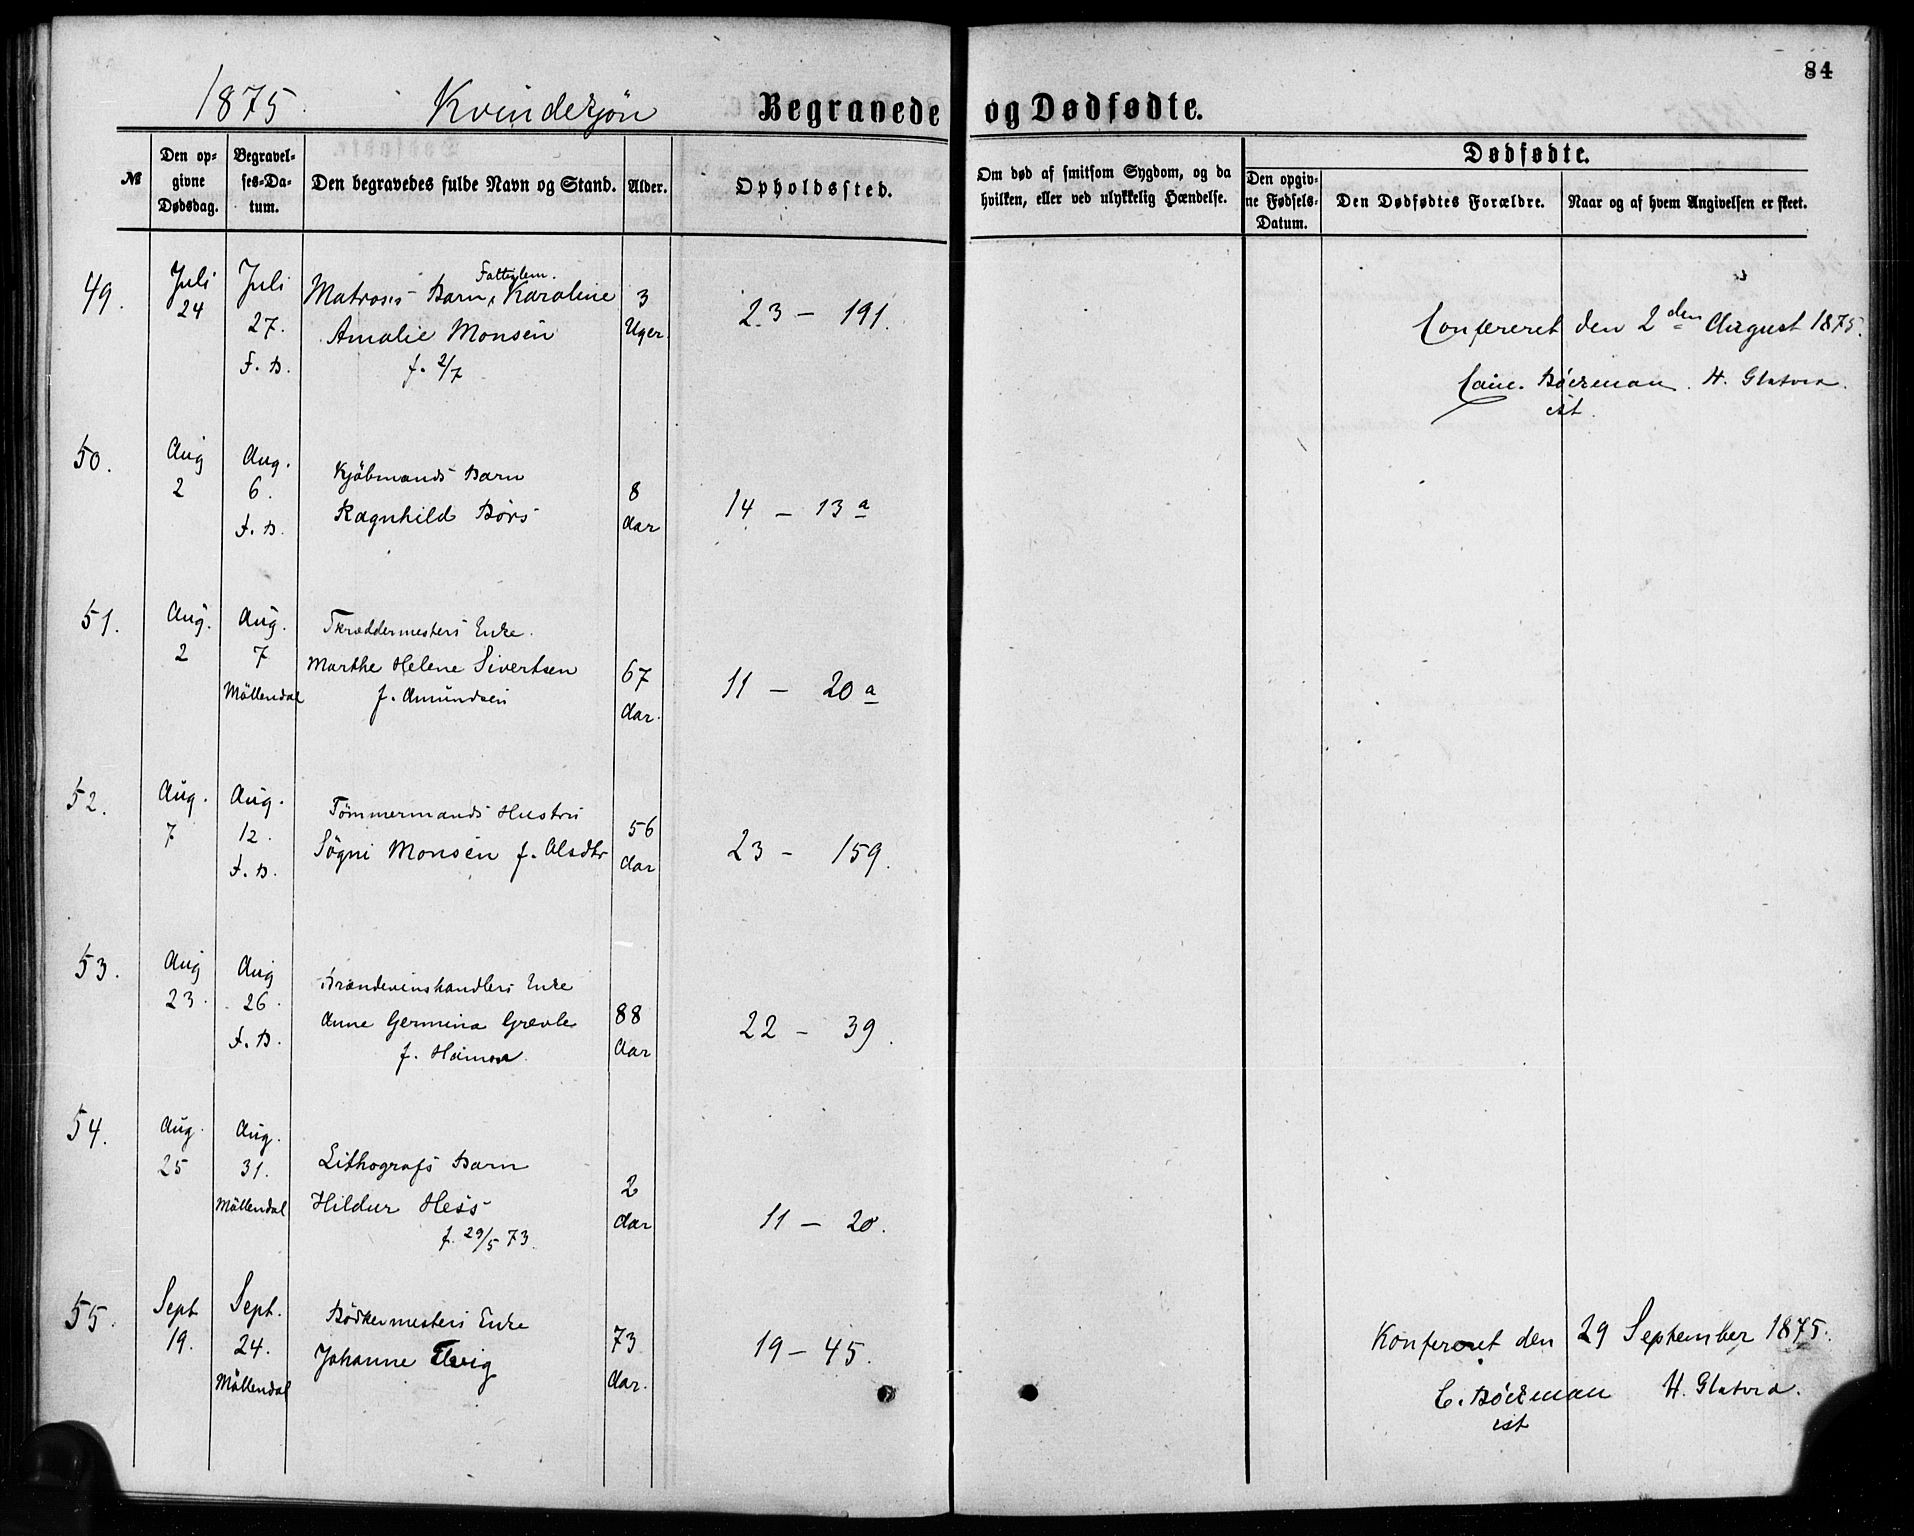 84
1875. Kvindekjøn Begravede og Dødfødte.
№
Den opgivne Dødsdag.
Begravelses-Datum.
Den begravedes fulde Navn og Stand.
Alder.
Opholdssted.
Om død af smitsom Sygdom, og da hvilken, eller ved ulykkelig Hændelse.
Dødfødte.
Den opgivne Fødsels-Datum.
Den Dødfødtes Forældre.
Naar og af hvem Angivelsen er skeet.
49. Juli 24 Juli 27. F. B.
Fattiglem.
Matroses Barn, Karoline
Amalie Monsen
f. 2/7
3 Uger.
23 – 191.
Confereret den 2den August 1875.
Böckman H. Glatved
cst.
50. Aug 2 Aug. 6. F. B.
Kjöbmands Barn
Ragnhild Börs
8 Aar
14 – 13 a
51. Aug. 2 Aug. 7 Möllendal
Skræddermesters Enke.
Marthe Helene Sivertsen
f. Amundsen
67 Aar.
11 – 20 a
52. Aug. 7 Aug. 12. F. B.
Tømmermands Hustru
Søgni Monsen f. Olsdtr
56 Aar
23 – 159.
53. Aug 23. Aug 26. F. B.
Brændevinshandlers Enke
Anne Germina Grevle
88 Aar
22 – 39.
54. Aug. 25 Aug. 31. Möllendal
Lithografs Barn
Hildur Hess
f. 29/5 73.
2 Aar
11 – 20.
55. Sept 19. Sept. 24. Möllendal
Bödkermesters Enke
Johanne
73 Aar.
19 – 45.
Konfereret den 29 September 1875.
C. Böckman H. Glatved.
cst